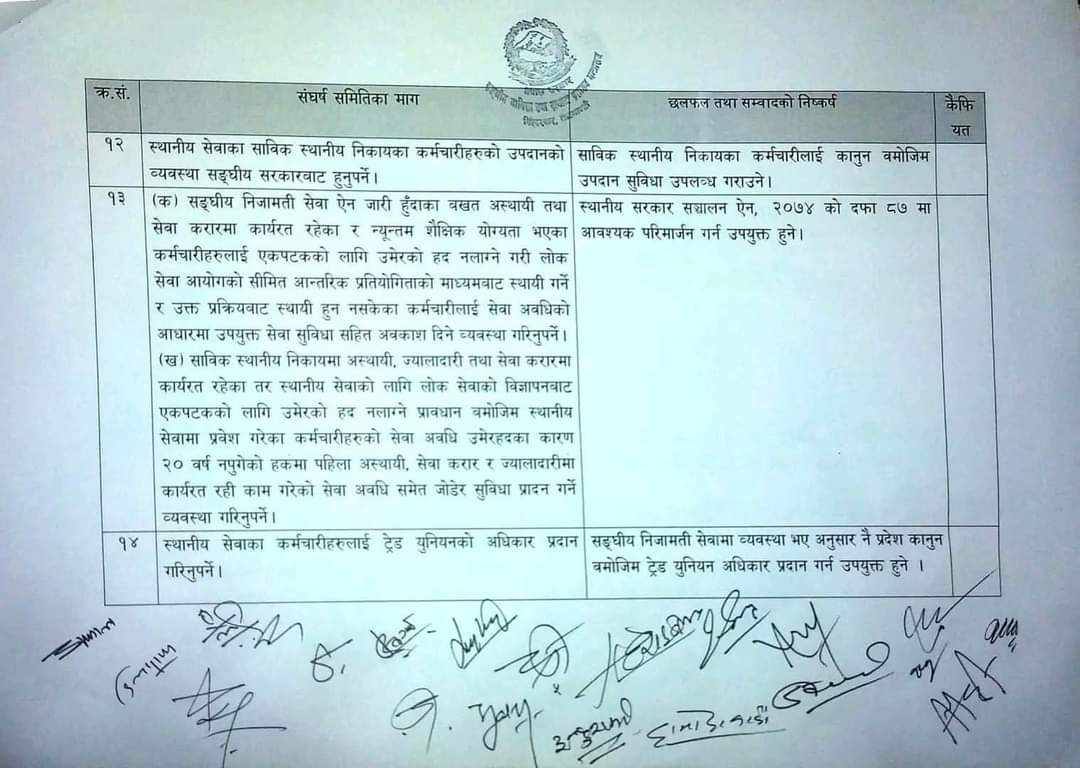 क्र.सं.
संघर्ष समितिका माग
छलफल तथा सम्वादको निष्कर्ष
कैफि
यत
१२
स्थानीय सेवाका साविक स्थानीय निकायका कर्मचारीहरुको उपदानको
व्यवस्था सङ्घीय सरकारवाट हुनुपर्ने।
साविक स्थानीय निकायका कर्मचारीलाई कानुन वमोजिम
उपदान सुविधा उपलव्ध गराउने।
१३
(क) सङ्घीय निजामती सेवा ऐन जारी हुँदाका बखत अस्थायी तथा
सेवा करारमा कार्यरत रहेका र न्यून्तम शैक्षिक योग्यता भएका
कर्मचारीहरुलाई एकपटकको लागि उमेरको हद नलाग्ने गरी लोक
सेवा आयोगको सीमित आन्तरिक प्रतियोगिताको माध्यमवाट स्थायी गर्ने
र उक्त प्रक्रियवाट स्थायी हुन नसकेका कर्मचारीलाई सेवा अवधिको
आधारमा उपयुक्त सेवा सुविधा सहित अवकाश दिने व्यवस्था गरिनुपर्ने।
(ख) साविक स्थानीय निकायमा अस्थायी, ज्यालादारी तथा सेवा करारमा
कार्यरत रहेका तर स्थानीय सेवाको लागि लोक सेवाको विज्ञापनबाट
एकपटकको लागि उमेरको हद नलाग्ने प्रावधान वमोजिम स्थानीय
सेवामा प्रवेश गरेका कर्मचारीहरुको सेवा अवधि उमेरहदका कारण
२० वर्ष नपुगेको हकमा पहिला अस्थायी, सेवा करार र ज्यालादारीमा
कार्यरत रही काम गरेको सेवा अवधि समेत जोडेर सुविधा प्रादन गर्ने
व्यवस्था गरिनुपर्ने।
स्थानीय सरकार सञ्चालन ऐन, २०७४ को दफा ८७ मा
आवश्यक परिमार्जन गर्न उपयुक्त हुने।
१४
स्थानीय सेवाका कर्मचारीहरुलाई ट्रेड युनियनको अधिकार प्रदान
गरिनुपर्ने।
सङ्घीय निजामती सेवामा व्यवस्था भए अनुसार नै प्रदेश कानुन
वमोजिम ट्रेड युनियन अधिकार प्रदान गर्न उपयुक्त हुने ।